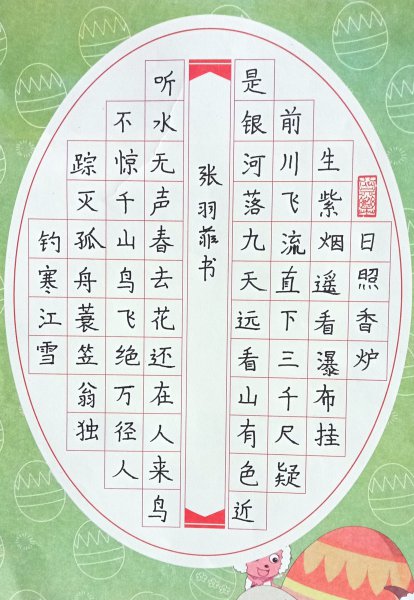 日照香炉
生紫烟遥看瀑布挂
前川飞流直下三千尺疑
是银河落九天远看山有色近
张羽菲书
听水无声春去花还在人来鸟
不惊千山鸟飞绝万径人
踪灭孤舟蓑笠翁独
钓寒江雪